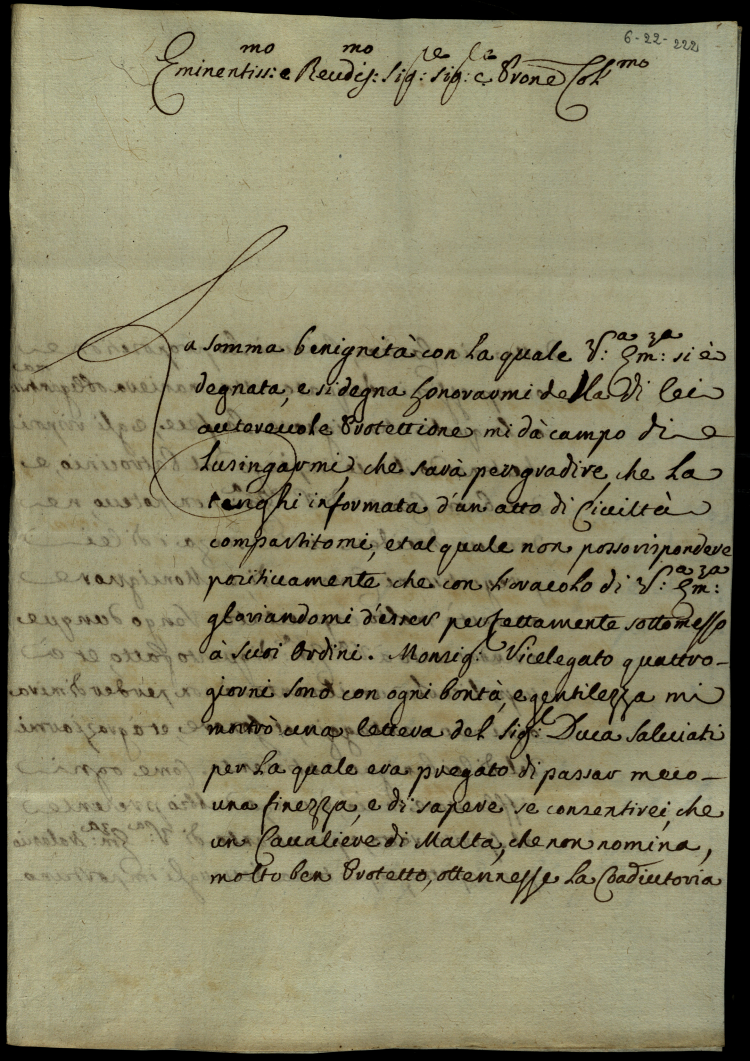 6-22-222
Eminentiss:mo e Reudis:mo Sig:re Sig:re e Prone Col:mo
La somma benignità con la quale V:a Em:za si è
degnata, e si degna honorarmi della di lei
autoreuole Protettione mi dà campo di
lusingarmi, che sarà per gradire, che la
tenghi informata d'un atto di Ciuiltà
compartitomi, et al quale non posso rispondere
positiuamente che con l'oracolo di V:a Em:za
gloriandomi d'esser perfettamente sottomesso
à suoi Ordini. Monsig:r Vicelegato quattro
giorni sono con ogni bontà, e gentilezza mi
mostrò una lettera del sig:r Duca Saluiati
per la quale era pregato di passar meco
una finezza, e di sapere se consentirei, che
un Caualiere di Malta, che non nomina,
molto ben Protetto, ottennesse la Coadiutoria